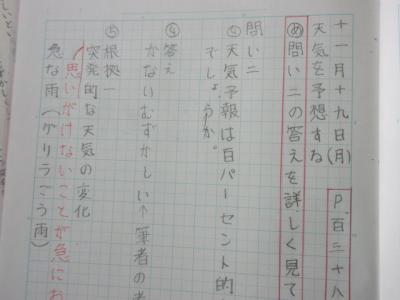 十一月十九日(月) P.百三十八
天気を予想する
め 問い二の答えを詳しく見て
問い二
天気予報は百パーセント的
でしょうか。
答え
かないむずかしい↑筆者の考
⑤根拠一
突発的な天気の変化
思いがけないことが急にお
急な雨(ゲリラごう雨)